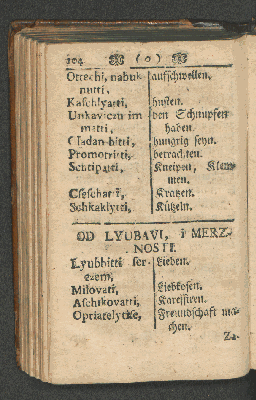 104 ( o )
Otrechi, nabuk- aufschwellen.
nutti,
Kaschlyatti, husten.
Unkaviczu im- den Schnupfen
matti, haben.
Gladan bitti, hungrig seyn.
Promotritti, betrachten.
Schtipatti, Kneipen, Klem-
men.
Cseschatti, Kratzen.
Schkaklytti, Kützeln.
OD LYUBAVI, I MERZ-
NOSTI.
Lyubbitti ser- Lieben.
czem,
Milovati, Liebkosen.
Aschikovatti, Karessiren.
Opriatelytse, Freundschaft ma-
chen.
Za-